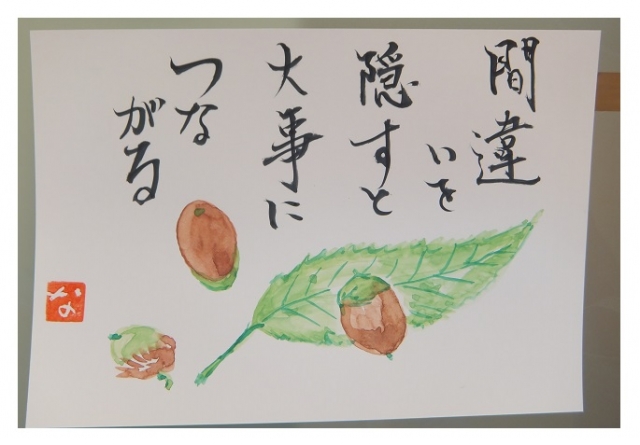 間違
いを
隠すと
大事に
つな
がる